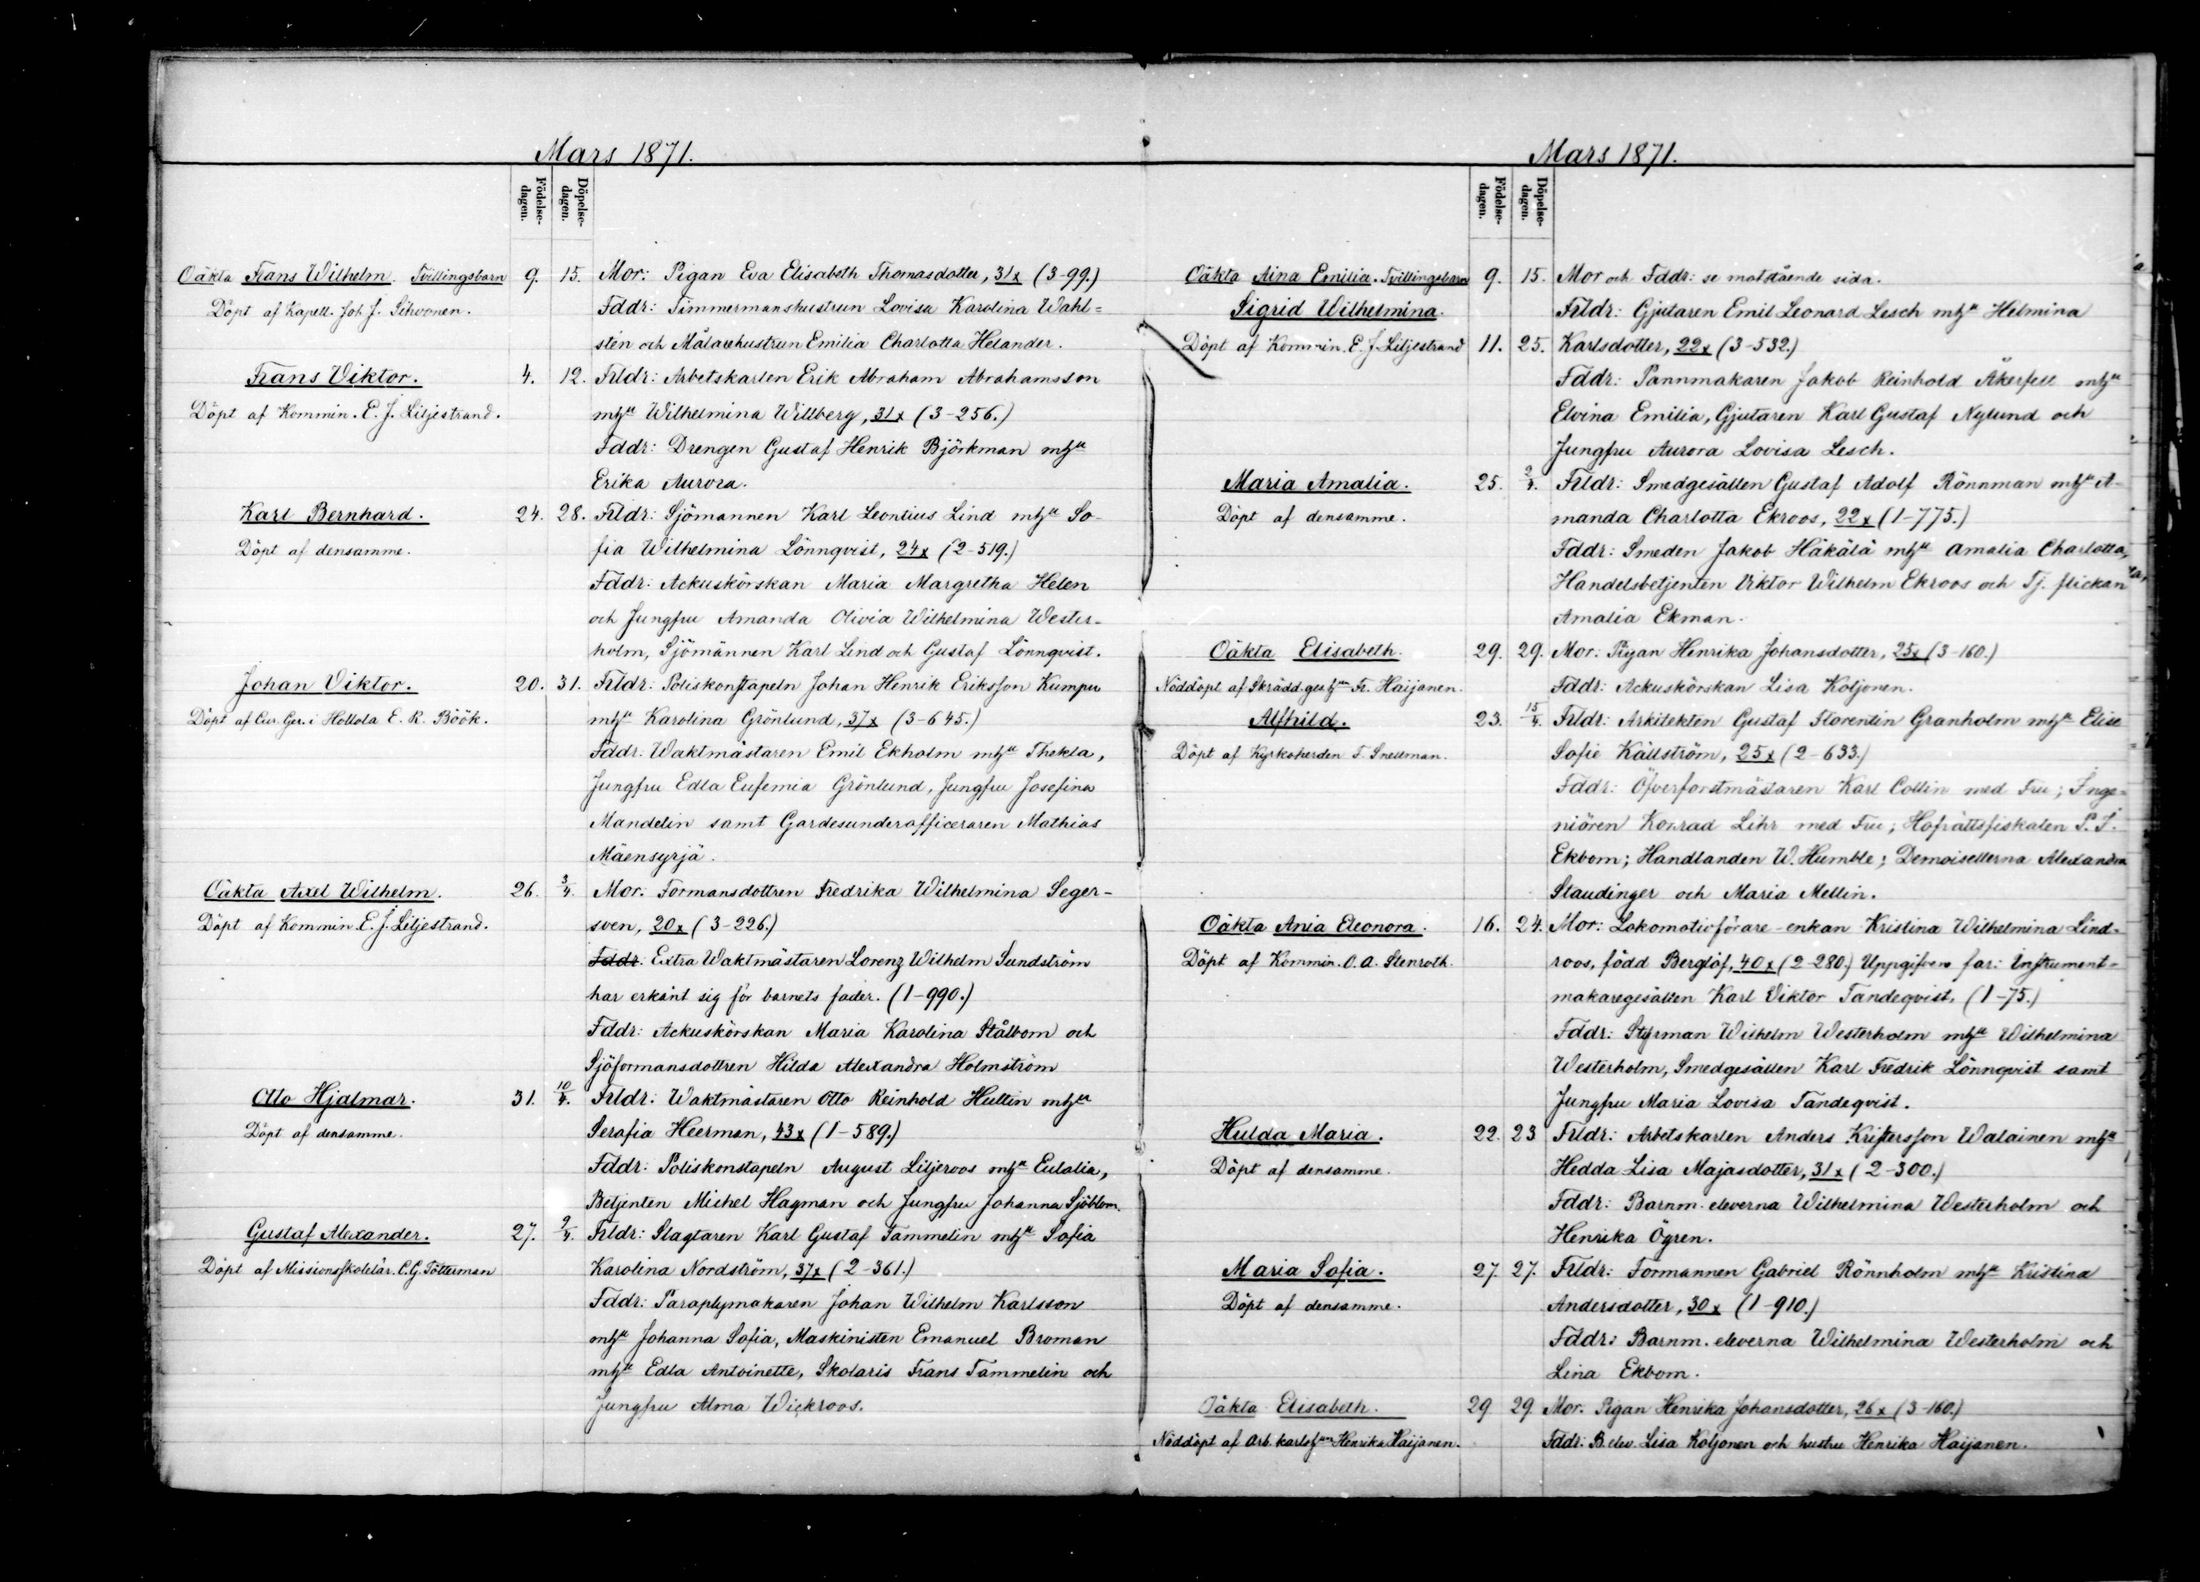 Mars 1871.
Födelse-dagen.
Döpelse-dagen.
Oäkta Frans Wilhelm. Tvillingsbarn 9. 15. Mor: Pigan Eva Elisabeth Thomasdotter, 31x (3-99.)
Döpt af Kapell. Joh. J. Sihvonen. Fddr: Timmermanshustrun Lovisa Karolina Wahl=
stén och Målarehustrun Emilia Charlotta Helander.
Frans Viktor. 4. 12. Frldr: Arbetskarlen Erik Abraham Abrahamsson
Döpt af Kommin. E. J. Liljestrand. mhu Wilhelmina Willberg, 31x (3-256.)
Fddr: Drengen Gustaf Henrik Björkman mhu
Erika Aurora.
Karl Bernhard. 24. 28. Frldr: Sjömannen Karl Leontius Lind mhu So-
Döpt af densamme. fia Wilhelmina Lönnqvist, 24x (2-519.)
Fddr: Ackuskörskan Maria Margretha Helen
och Jungfru Amanda Olivia Wilhelmina Wester-
holm, Sjömännen Karl Lind och Gustaf Lönnqvist.
Johan Viktor. 20. 31. Frldr: Poliskonstapeln Johan Henrik Eriksson Kumpu
Döpt af Cur. Ger. i Hollola E. R. Böök. mhu Karolina Grönlund, 37x (3-645.)
Fddr: Waktmästaren Emil Ekholm mhu Thekla,
Jungfru Edla Eufemia Grönlund, Jungfru Josefina
Mandelin samt Gardesunderofficeraren Mathias
Mäensyrjä.
Oäkta Axel Wilhelm. 26. 3/4. Mor: Formansdottren Fredrika Wilhelmina Seger-
Döpt af Kommin. E. J. Liljestrand. sven, 20x (3-226.)
Fddr: Extra Waktmästaren Lorenz Wilhelm Sundström
har erkänt sig för barnets fader. (1-990.)
Fddr: Ackuskörskan Maria Karolina Stålbom och
Sjöformansdottren Hilda Alexandra Holmström
Otto Hjalmar. 31. 10/4. Frldr: Waktmästaren Otto Reinhold Hultin mhu
Döpt af densamme. Serafia Heerman, 43x (1-589.)
Fddr: Poliskonstapeln August Liljeroos mhu Eulalia,
Betjenten Michel Hagman och Jungfru Johanna Sjöblom.
Gustaf Alexander. 27. 9/4. Frldr: Slagtaren Karl Gustaf Tammelin mhu Sofia
Döpt af Missionsskolelär. C. G. Tötterman Karolina Nordström, 37x (2-361.)
Fddr: Paraplymakaren Johan Wilhelm Karlsson
mhu Johanna Sofia, Maskinisten Emanuel Broman
mhu Edla Antoinette, Skolaris Frans Tammelin och
Jungfru Alma Wickroos.
Mars 1871.
Födelse-dagen.
Döpelse-dagen.
Oäkta Aina Emilia. Tvillingsbarn 9. 15. Mor och Fddr: se motstående sida.
Sigrid Wilhelmina. Frldr: Gjutaren Emil Leonard Lesch mhu Helmina
Döpt af Kommin. E. J. Liljestrand 11. 25. Karlsdotter, 22x (3-532.)
Fddr: Pannmakaren Jakob Reinhold Åkerfelt mhu
Elvina Emilia, Gjutaren Karl Gustaf Nylund och
Jungfru Aurora Lovisa Lesch.
Maria Amalia. 25. 2/4. Frldr: Smedgesällen Gustaf Adolf Rönnman mhu A-
Döpt af densamme. manda Charlotta Ekroos, 22x (1-775.)
Fddr: Smeden Jakob Häkälä mhu Amalia Charlotta,
Handelsbetjenten Viktor Wilhelm Ekroos och Tj. flickan
Amalia Ekman.
Oäkta Elisabeth. 29. 29. Mor: Pigan Henrika Johansdotter, 25x (3-160.)
Nöddöpt af Skrädd.ges.hun Fr. Haijanen. Fddr: Ackuskörskan Lisa Koljonen.
Alfhild. 23. 15/4. Frldr: Arkitekten Gustaf Florentin Granholm mhu Elise
Döpt af Kyrkoherden F. Snellman. Sofie Källström, 25x (2-633.)
Fddr: Öfverforstmästaren Karl Collin med Fru; Inge=
niören Konrad Lihr med Fru; Hofrättsfiskalen P. I.
Ekbom; Handlanden W. Humble; Demoisellerna Alexandra
Staudinger och Maria Mellin.
Oäkta Ania Eleonora. 16. 24. Mor: Lokomotivförare-enkan Kristina Wilhelmina Lind-
Döpt af Kommin. O. A. Stenroth. roos, född Berglöf, 40x (2-280.) Uppgifven far: Instrument-
makaregesällen Karl Viktor Tandeqvist. (1-75.)
Fddr: Styrman Wilhelm Westerholm mhu Wilhelmina
Westerholm, Smedgesällen Karl Fredrik Lönnqvist samt
Jungfru Maria Lovisa Tandeqvist.
Hulda Maria. 22. 23 Frldr: Arbetskarlen Anders Kristersson Walainen mhu
Döpt af densamme. Hedda Lisa Majasdotter, 31x (2-300.)
Fddr: Barnm. eleverna Wilhelmina Westerholm och
Henrika Ögren.
Maria Sofia. 27. 27. Frldr: Formannen Gabriel Rönnholm mhu Kristina
Döpt af densamme. Andersdotter, 30x (1-910.)
Fddr: Barnm. eleverna Wilhelmina Westerholm och
Lina Ekbom.
Oäkta Elisabeth. 29 29 Mor: Pigan Henrika Johansdotter, 26x (3-160.)
Nöddöpt af Arb.karlshun Henrika Haijanen. Fddr: B.elev. Lisa Koljonen och hustru Henrika Haijanen.